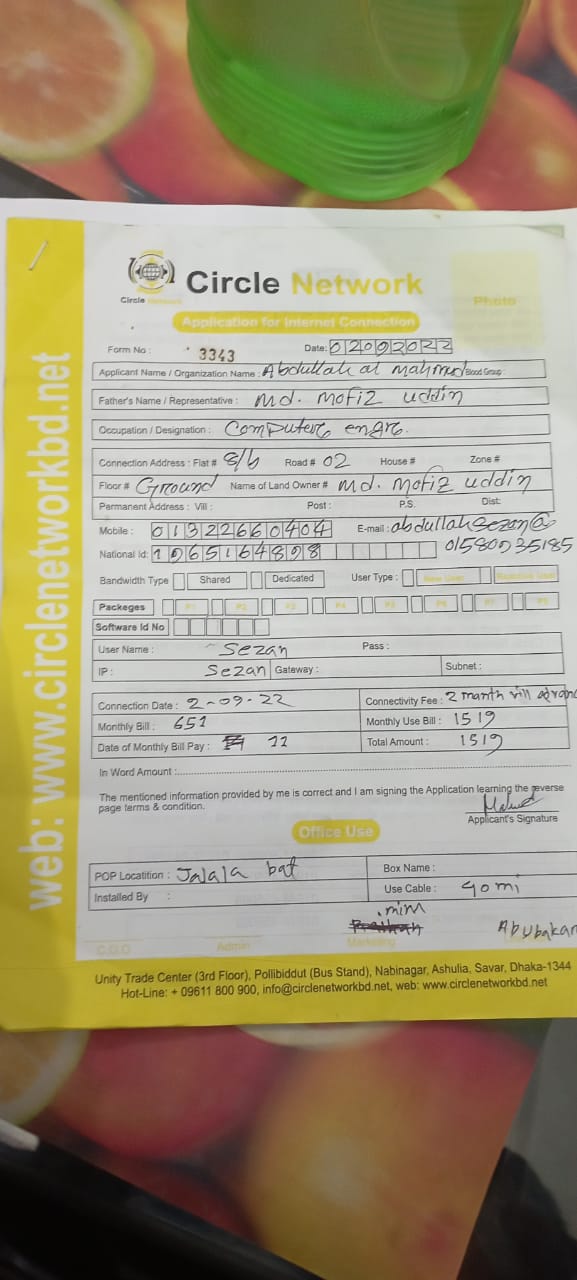 web: www.circlenetworkbd.net
Circle Network
Circle Network
Photo
Application for Internet Connection
Form No : 3343
Date: 02092022
Applicant Name / Organization Name : Abdullah al mahmud Blood Group :
Father's Name / Representative : md. mofiz uddin
Occupation / Designation : Computers engrs.
Connection Address : Flat # 8/b Road # 02 House # Zone #
Floor # Ground Name of Land Owner # md. mofiz uddin
Permanent Address : Vill : Post : P.S. Dist:
Mobile : 01322660404 E-mail : abdullahsezan@
01580235185
National Id: 1965164898
Bandwidth Type Shared Dedicated User Type : New User
Packeges P1 P2 P3 P4 P5 P6 P7 P8
Software Id No
User Name : Sezan Pass :
IP : Sezan Gateway : Subnet :
Connection Date : 2-09-22 Connectivity Fee : 2 manth vill advanc
Monthly Bill : 651 Monthly Use Bill : 1519
Date of Monthly Bill Pay : 11 Total Amount : 1519
In Word Amount :
The mentioned information provided by me is correct and I am signing the Application learning the reverse
page terms & condition.
Applicant's Signature
Office Use
POP Locatition : Jalala bat Box Name :
Installed By : Use Cable : 40 mi
mim
Abubakar
C.O.O Admin Marketing
Unity Trade Center (3rd Floor), Pollibiddut (Bus Stand), Nabinagar, Ashulia, Savar, Dhaka-1344
Hot-Line: + 09611 800 900, info@circlenetworkbd.net, web: www.circlenetworkbd.net